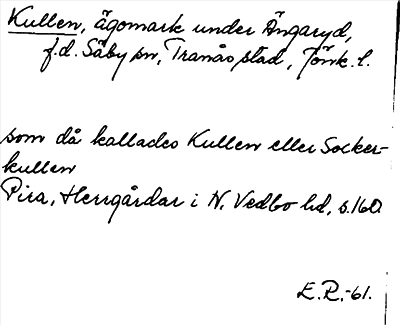 Kullen, ägomark under Ängaryd,
f.d. Säby sn, Tranås stad, Jönk. l.
som då kallades Kullen eller Socker-
kullen
Pira, Herrgårdar i N. Vedbo hd, s.160.
E.R.-61.